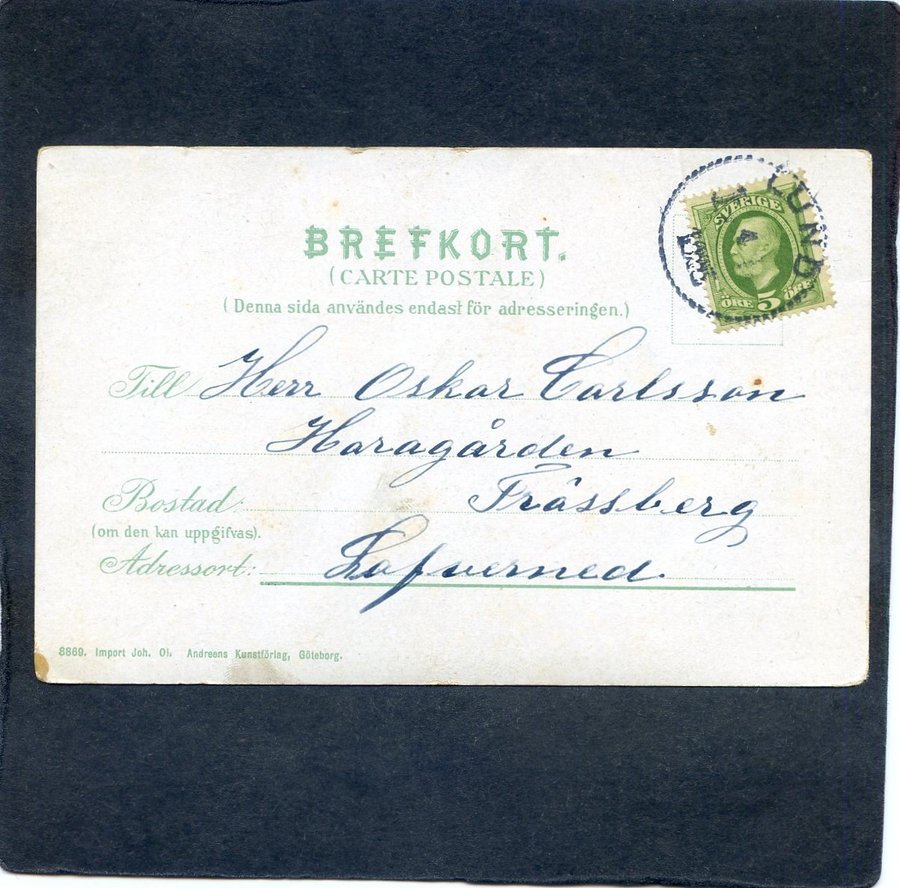 BREFKORT.
(CARTE POSTALE)
(Denna sida användes endast för adresseringen.)
SVERIGE
ÖRE 5 ÖRE
LUND
4
Till Herr Oskar Carlsson
Haragården
Bostad: Trässberg
(om den kan uppgifvas).
Adressort: Lafverned
8869. Import Joh. Ol. Andreens Kunstförlag, Göteborg.